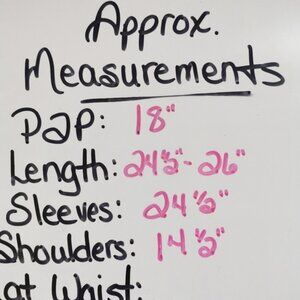 Approx.
Measurements
P2P: 18"
Length: 24½"- 26"
Sleeves: 24½"
Shoulders: 14½"
at Waist: